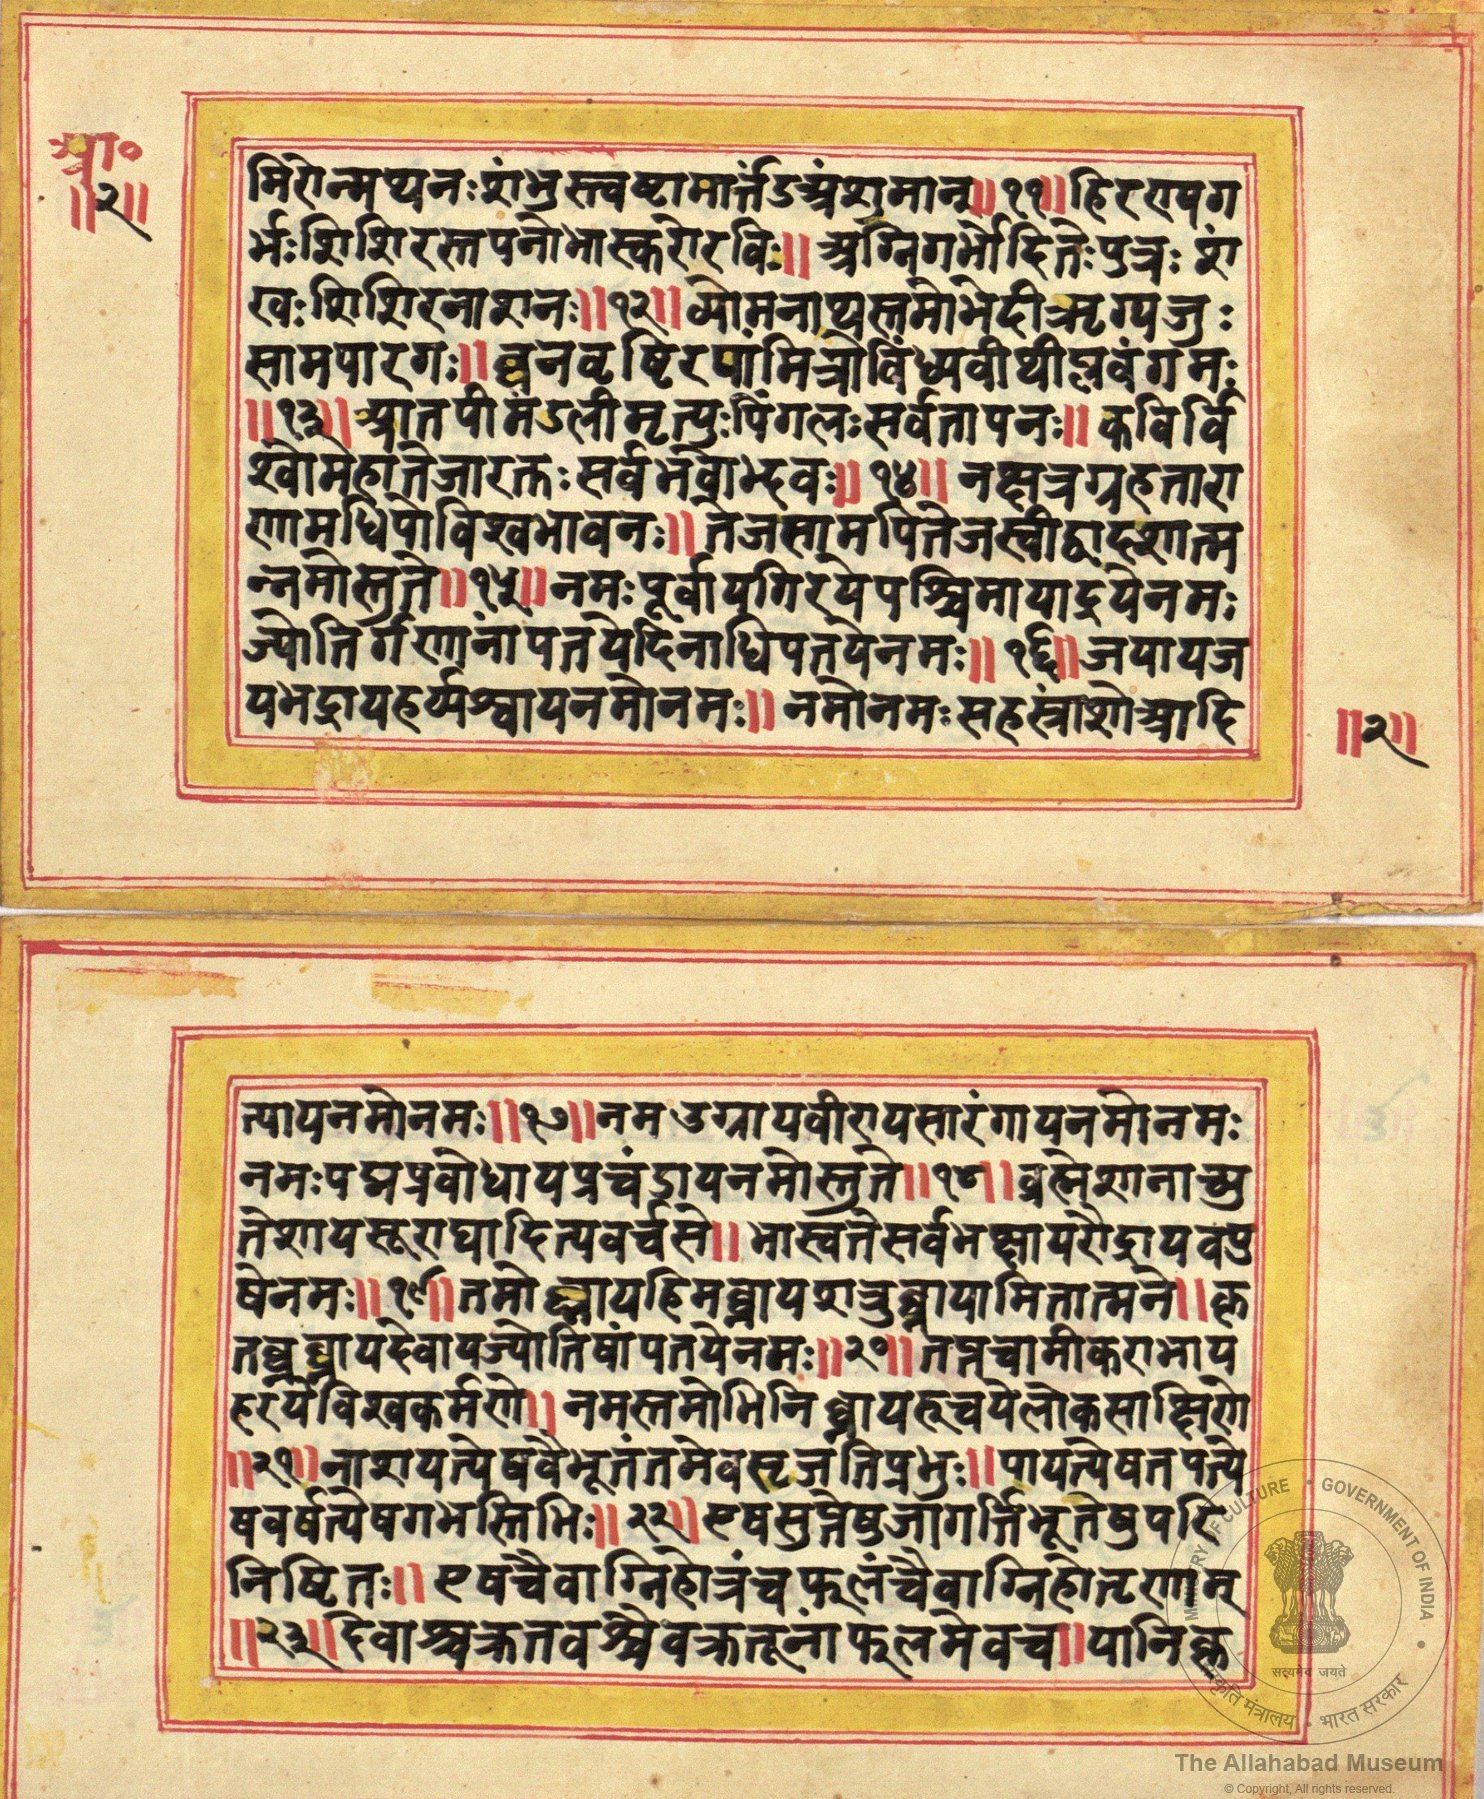 आ०
॥२॥
मिरोन्मथनःशंभुस्त्वष्टामार्त्तंडअंशुमान्॥११॥हिरण्यग
र्भःशिशिरस्तपनोभास्करोरविः॥अग्निगर्भोदितेःपुत्रःशं
खःशिशिरनाशनः॥१२॥व्योमनाथस्तमोभेदीऋग्यजुः
सामपारगः॥घनवृष्टिरपांमित्रोविंध्यवीथीप्लवंगमः
॥१३॥आतपीमंडलीमृत्युःपिंगलःसर्वतापनः॥कविर्वि
श्वोमहातेजारक्तःसर्वभवोद्भवः॥१४॥नक्षत्रग्रहतारा
णामधिपोविश्वभावनः॥तेजसामपितेजस्वीद्वादशात्म
न्नमोस्तुते॥१५॥नमःपूर्वायगिरयेपश्चिमायाद्रयेनमः
ज्योतिर्गणानांपतयेदिनाधिपतयेनमः॥१६॥जयायज
यभद्रायहर्य्यश्वायनमोनमः॥नमोनमःसहस्रांशोआदि
॥२॥
त्यायनमोनमः॥१७॥नमउग्रायवीरायसारंगायनमोनमः
नमःपद्मप्रबोधायप्रचंडायनमोस्तुते॥१८॥ब्रह्मेशानाच्यु
तेशायसूरायादित्यवर्चसे॥भास्वतेसर्वभक्षायरौद्रायवपु
षेनमः॥१९॥तमोघ्नायहिमघ्नायशत्रुघ्नायामितात्मने॥कृ
तघ्नघ्नायदेवायज्योतिषांपतयेनमः॥२०॥तप्तचामीकराभाय
हरयेविश्वकर्मणे॥नमस्तमोभिनिघ्नायरूचयेलोकसाक्षिणे
॥२१॥नाशयत्येषवैभूतंतमेवसृजतिप्रभुः॥पायत्येषतपत्ये
षवर्षत्येषगभस्तिभिः॥२२॥एषसुप्तेषुजागर्त्तिभूतेषुपरि
निष्टितः॥एषचैवाग्निहोत्रंचफलंचैवाग्निहोतृणाम्
॥२३॥देवाश्चक्रतवश्चैवक्रतूनांफलमेवच॥यानिकृ
MINISTRY OF CULTURE • GOVERNMENT OF INDIA
सत्यमेव जयते
संस्कृति मंत्रालय • भारत सरकार
The Allahabad Museum
© Copyright, All rights reserved.